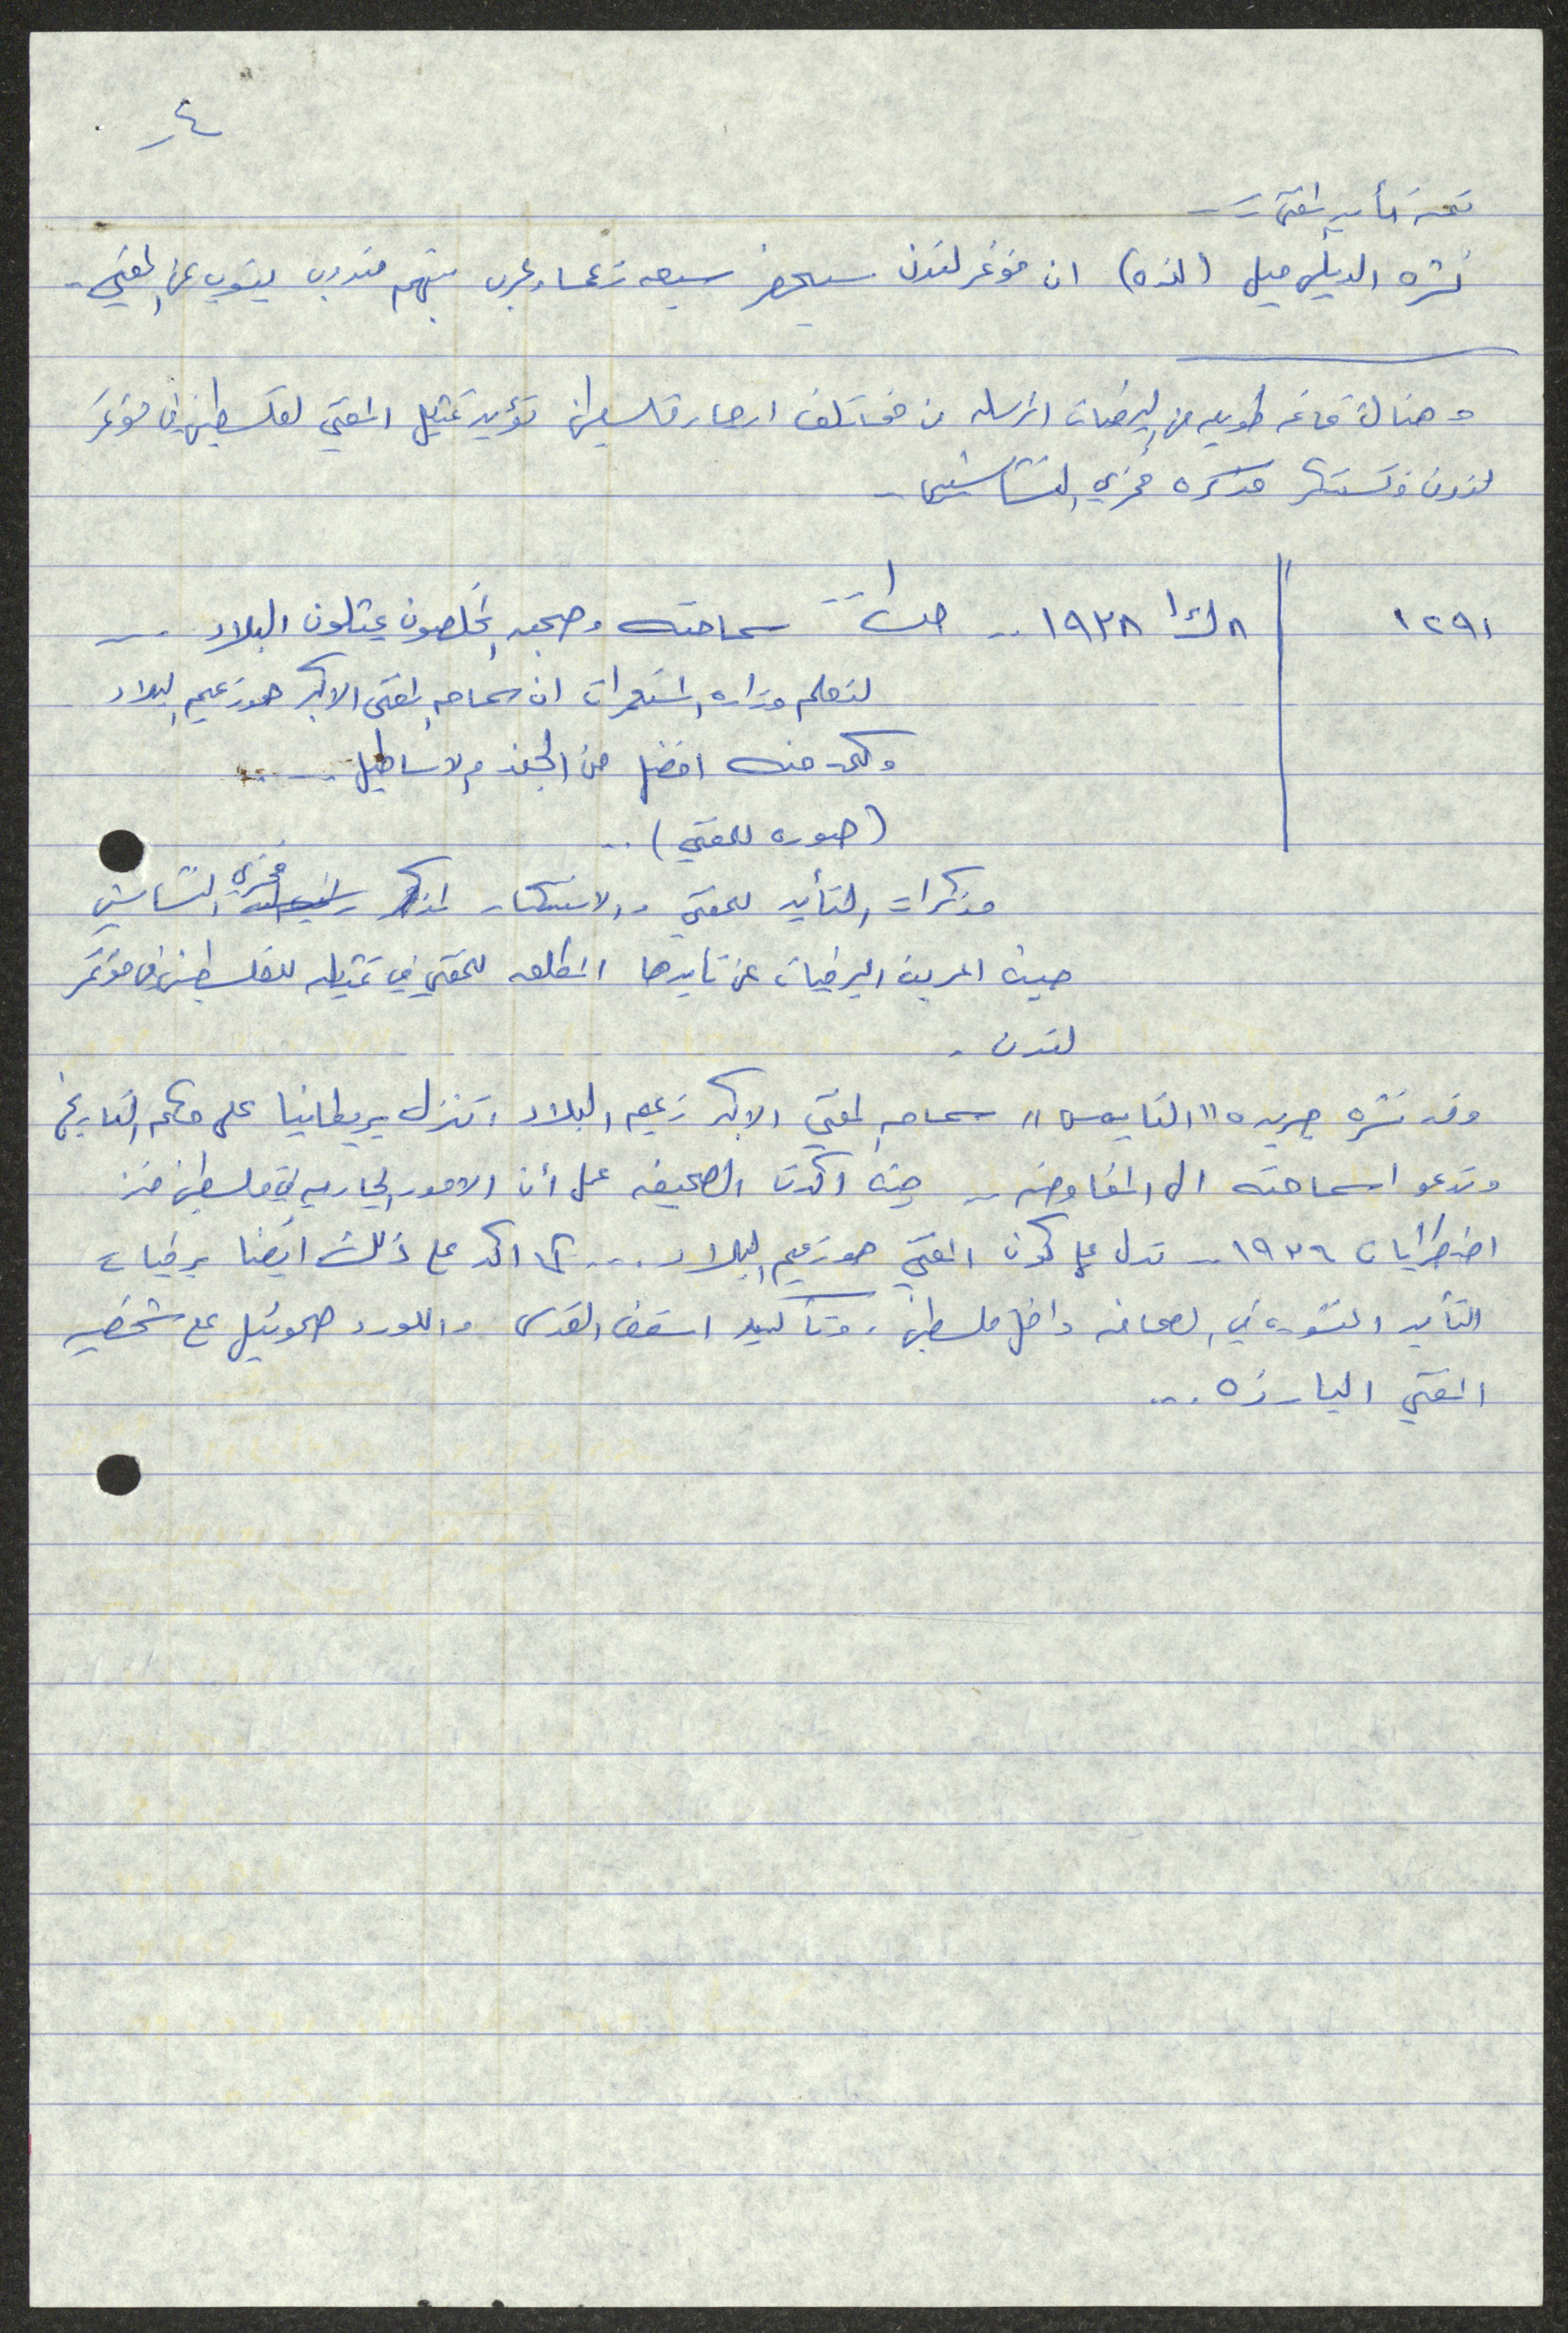 ٤
تتمة تأييد المفتي ..
نشره الديلي ميل (لندن) ان مؤتمر لندن سيحضره سبعه زعماء عرب منهم مندوب ينوب عن المفتي ..
وهناك قائمه طويله من البرقيات المرسله من مختلف انحاء فلسطين تؤيد تمثيل المفتي لفلسطين في مؤتمر
لندن وتستنكر مذكره فخري النشاشيبي ..
١٢٩١ ٨ ك١ ١٩٣٨ .. سماحته وصحبه المخلصون يمثلون البلاد ..
لتعلم وزاره المستعمرات ان سماحه المفتي الاكبر هو زعيم البلاد
وكلمه منه افضل من الجند والاساطيل ....
(صوره للمفتي) ..
مذكرات التأييد للمفتي والاستنكار لمذكره فخري النشاشيبي
حيث اعربت البرقيات عن تأييدها المطلق للمفتي في تمثيله لفلسطين في مؤتمر
لندن .
وقد نشره جريده "التايمس" سماحه المفتي الاكبر زعيم البلاد، تنزل بريطانيا على حكم التاريخ
وتدعو سماحته الى المفاوضه .. حيث اكدت الصحيفه على أن الامور الجاريه في فلسطين منذ
اضطرابات ١٩٣٦ .. تدل على كون المفتي هو زعيم البلاد ... كما اكد على ذلك ايضا برقيات
التأييد المنشوره في الصحافه داخل فلسطين، وتأكيد اسقف القدس واللورد صموئيل على شخصيه
المفتي البارزه ...